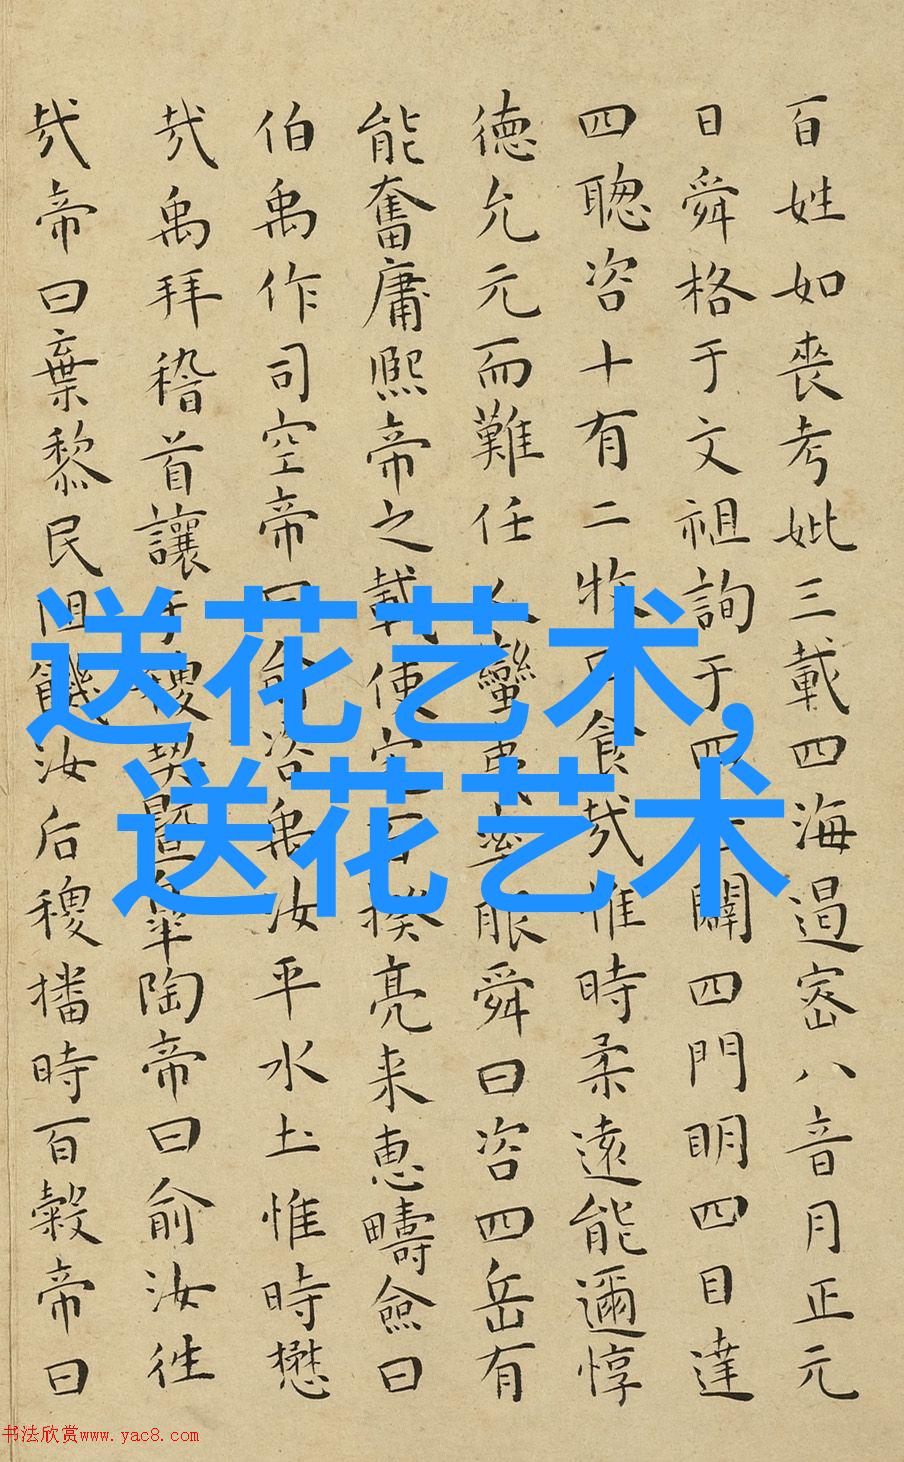 百姓如喪考妣三載四海遏密八音月正元
日舜格于文祖詢于四闢四門明四目達
四聰咨十有二牧曰食哉惟時柔遠能邇惇
德允元而難任人蠻夷率服舜曰咨四岳有
能奮庸熙帝之載使宅百揆亮来惠疇僉曰
伯禹作司空帝曰俞咨禹汝平水土惟時懋
哉禹拜稽首讓于稷契暨皋陶帝曰俞汝往
哉帝曰棄黎民阻飢汝后稷播時百穀帝曰
送花艺术,
送花艺术
书法欣赏www.yac8.com